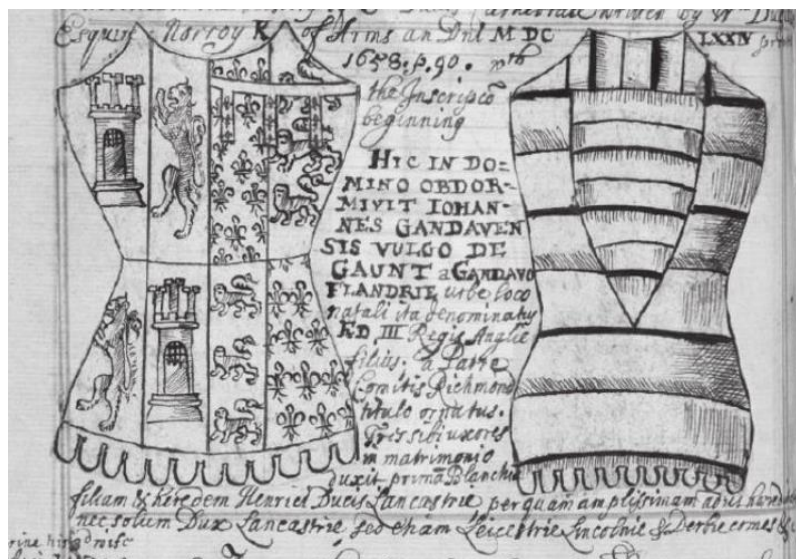 Cathedrall
by Wm
Esquire Norroy K of Arms an Dnl M DC LXXIV
1658. p. 90. wth
the Inscripcõ
beginning
HIC IN DO-
MINO OBDOR-
MIVIT IOHAN-
NES GANDAVEN
SIS VULGO DE
GAUNT a GANDAVO
FLANDRIE urbe loco
natali ita denominatus
ED III Regis Anglie
filius. a Patre
Comitis Richmond
titulo ornatus.
Tres sibi uxores
in matrimonio
duxit primã Blanchã
filiam & heredem Henrici Ducis Lancastrie per quam amplissimam adijt
nec solum Dux Lancastrie sed etiam Leicestrie Lincolnie & Derbie comes &